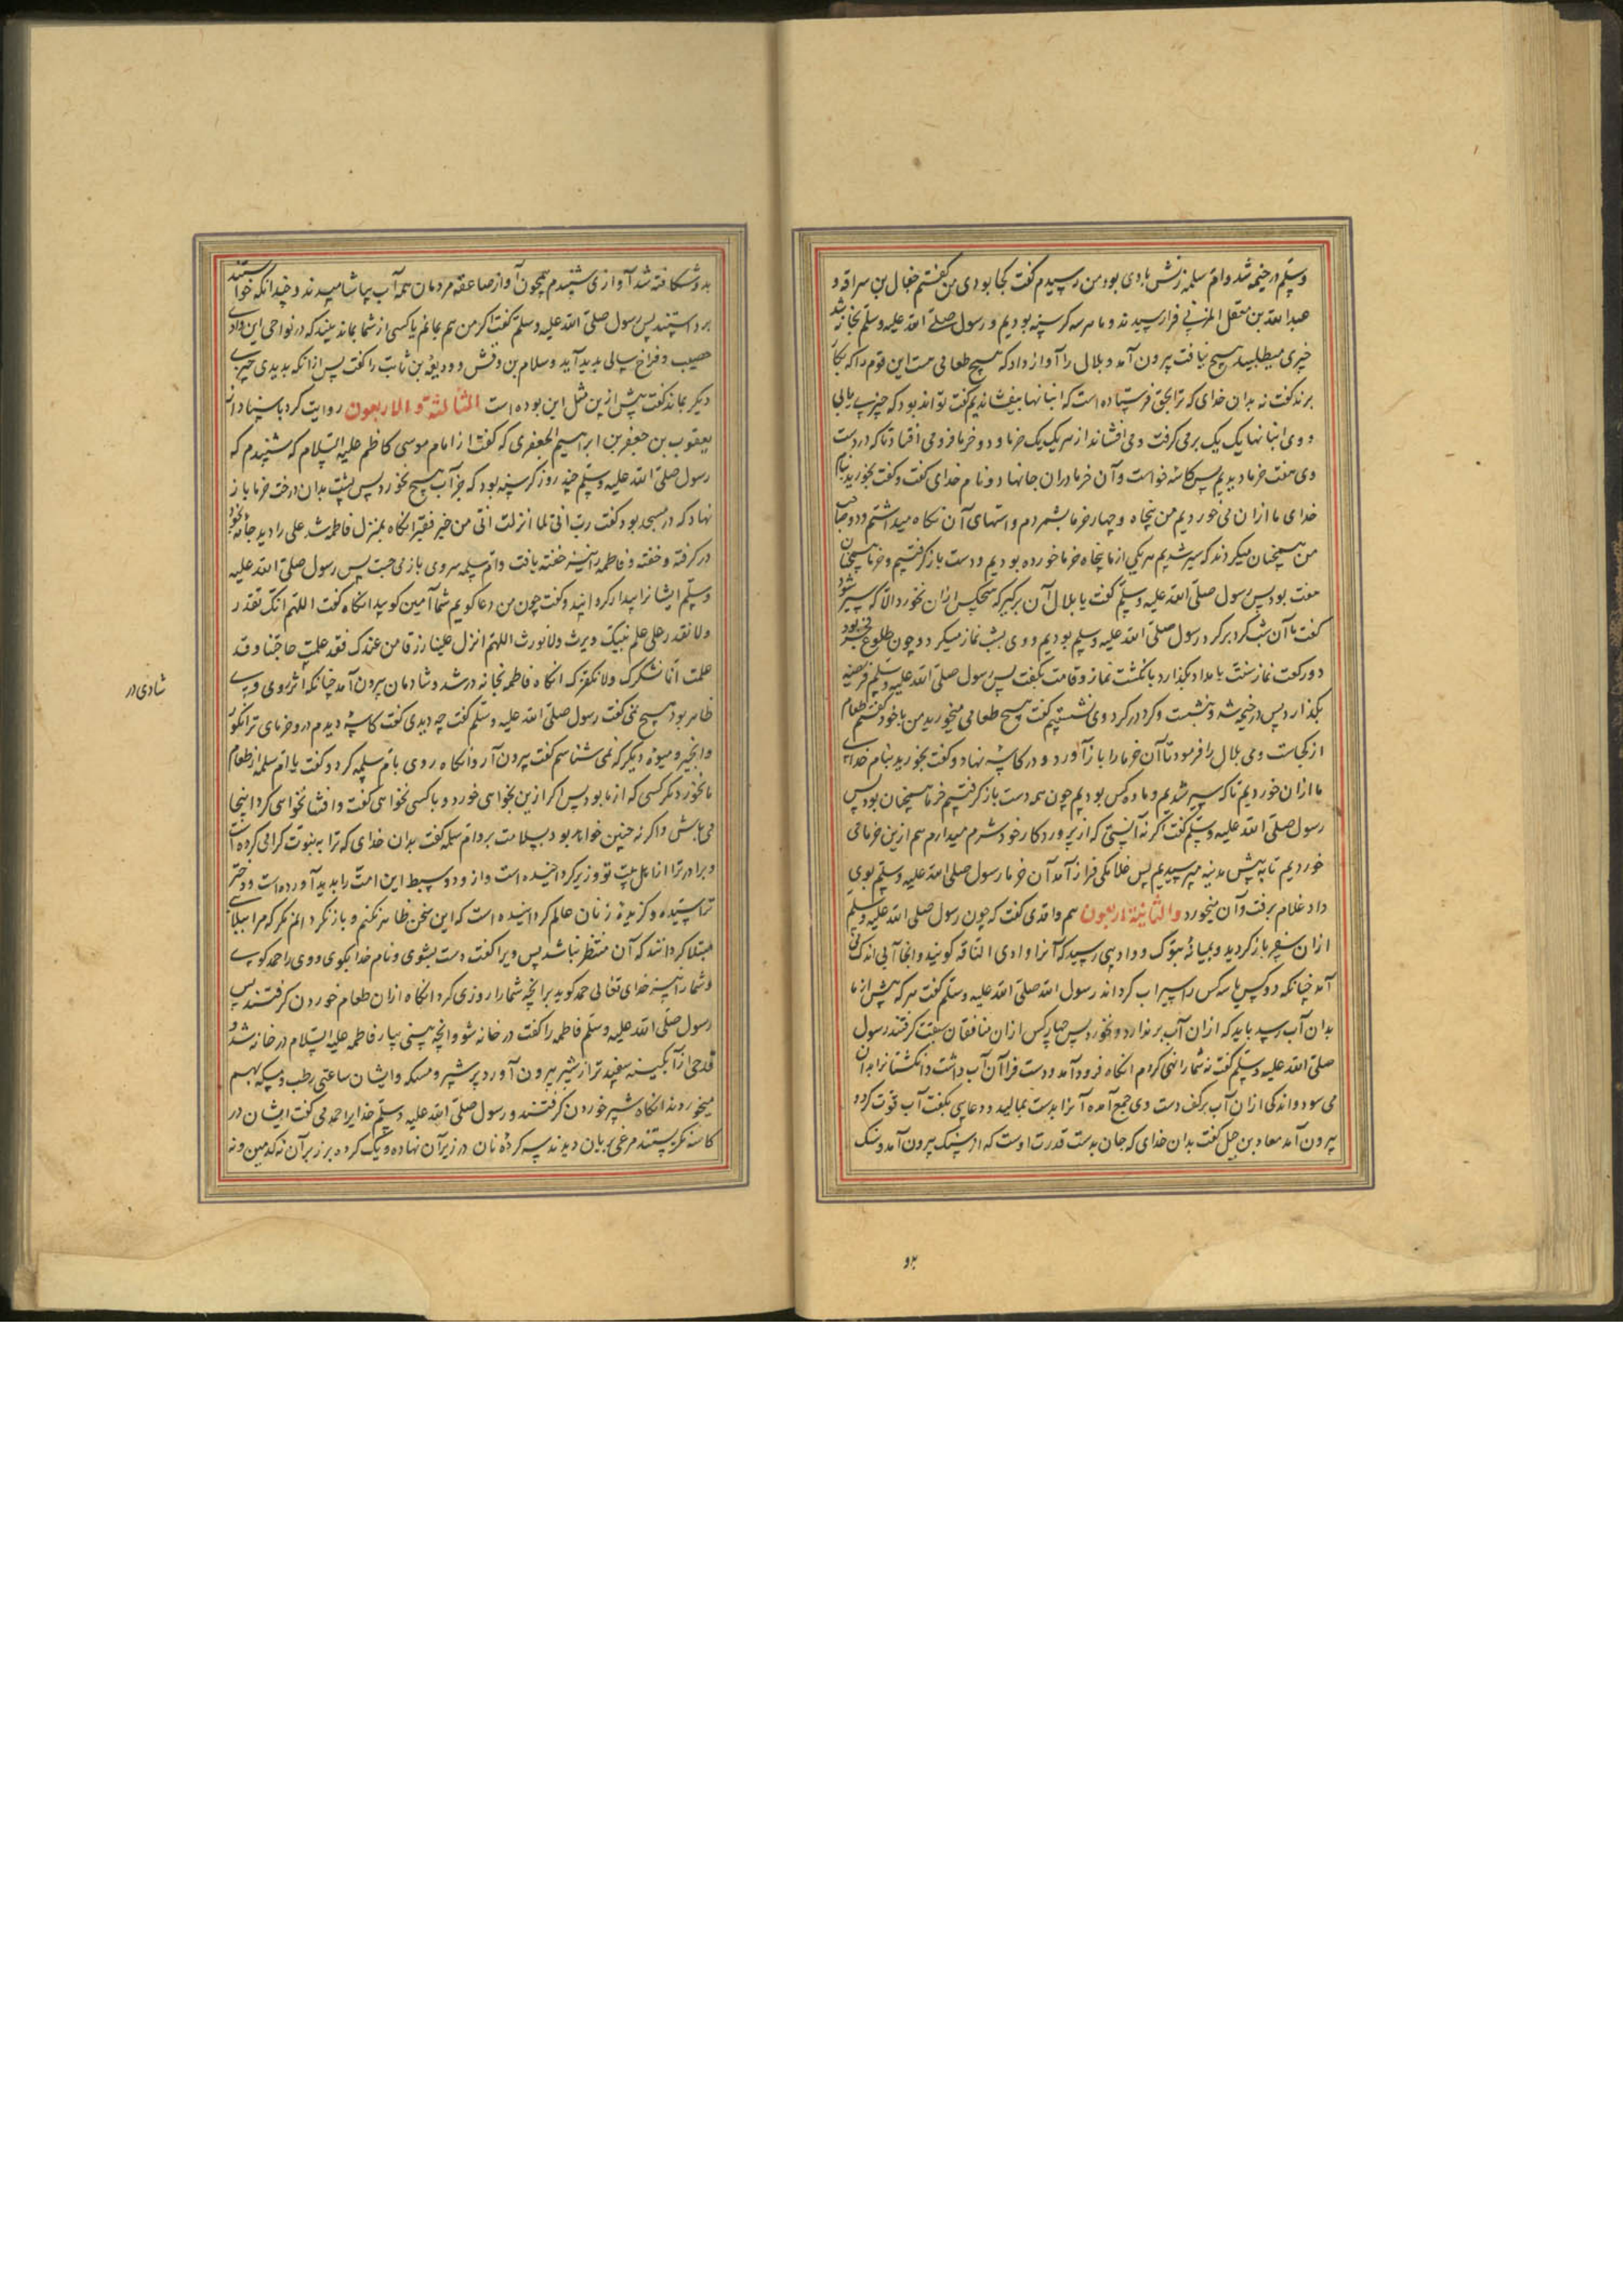 وسلّم در خیمه شد و ام سلمه زنش با وی بود من رسیدم گفت کجا بودی من گفتم جعال بن سراقه و
عبدالله بن مغفل المزنی فرا رسیدند و ما هر سه گرسنه بودیم و رسول صلّی الله علیه وسلّم بخانه شد
خیری میطلبید هیچ نیافت بیرون آمد و بلال را آواز داد که هیچ طعامی هست این قوم را که بکار
برند گفت نه بدان خدای که ترا بحق فرستاده است که انبانها بیفشاندیم گفت تواند بود که چیزی یابی
و وی انبانها یک یک برمی گرفت و می افشاند از هر یک یک خرما و دو خرما فرو می افتاد تا که در دست
وی هفت خرما دیدیم پس کاسه خواست و آن خرما در آن جا نهاد و نام خدای گفت و گفت بخورید بنام
خدای ما از آن می خوردیم من پنجاه و چهار خرما بشمردم و استهای آن نگاه میداشتم و دو صاحب
من همچنان میکردند که سیر شدیم هر یکی از ما پنجاه خرما خورده بودیم و دست باز گرفتیم و خرما همچنان
هفت بود پس رسول صلّی الله علیه وسلّم گفت یا بلال آن برگیر که هیچکس از آن نخورد الّا که سیر شود
گفت ما آن شب گرد بر گرد رسول صلّی الله علیه وسلّم بودیم و وی بشب نماز میکرد و چون طلوع فجر بود
دو رکعت نماز سنّت بامداد بگذارد بانگشت نماز و قامت بگفت پس رسول صلّی الله علیه وسلّم فریضه
بگذارد پس در خیمه شد و بنشست و گرد در گرد وی نشستیم گفت هیچ طعامی میخورید من با خود گفتم طعام
از کجاست وی بلال را فرمود تا آن خرما را باز آورد و در کاسه نهاد و گفت بخورید بنام خدای
ما از آن خوردیم تا که سیر شدیم و ما ده کس بودیم چون همه دست باز گرفتیم خرما همچنان بود پس
رسول صلّی الله علیه وسلّم گفت اگر نه آنستی که از پروردگار خود شرم میدارم هم ازین خرما می
خوردیم تا به پیش مدینه میرسیدیم پس غلامکی فراز آمد آن خرما رسول صلی الله علیه وسلّم بوی
داد غلام برفت و آن میخورد والثانیة اربعون هم واقدی گفت که چون رسول صلی الله علیه وسلّم
ازان سفر باز گردید و بمیانهٔ تبوک و وادیی رسید که آنرا وادی الناقه گویند و آنجا آبی اندک می
آمد چنانکه دو کس یا سه کس را سیراب گرداند رسول الله صلّی الله علیه وسلّم گفت هر که پیش از ما
بدان آب رسد باید که ازان آب برندارد و نخورد پس چهار کس ازان منافقان سبقت گرفتند رسول
صلّی الله علیه وسلّم گفت نه شما را نهی کردم انگاه فرود آمد و دست فرا آن آب داشت و انگشتانرا بدان
می سود و اندکی ازان آب بر کف دست وی جمع آمد آنرا بدست بمالید و دعایی بگفت آب قوت کرد و
بیرون آمد معاذ بن جبل گفت بدان خدای که جان بدست قدرت اوست که از سنگ بیرون آمد و سنگ
بدو شکافته شد آوازی شنیدم همچون آواز صاعقه مردمان همه آب بیاشامیدند و چندانکه خواستند
برداشتند پس رسول صلّی الله علیه وسلّم گفت اگر من هم بمانم یا کسی از شما بماند بیند که در نواحی این وادی
خصب و فراخ سالی پدید آید وسلام بن وقش و ودیعة بن ثابت را گفت پس از آنکه بدیدی چیزی
دیگر بماند گفت پیش ازین مثل این بوده است الثالثة و الاربعون روایت کرد باسناد از
یعقوب بن جعفر بن ابراهیم الجعفری که گفت از امام موسی کاظم علیه السّلام که شنیدم که
رسول صلّی الله علیه وسلّم چند روز گرسنه بود که جز آب هیچ نخورد پس پشت بدان درخت خرما باز
نهاد که در مسجد بود گفت ربّ انّی لما انزلت الّی من خیر فقیر انگاه بمنزل فاطمه شد علی را دید جامه بخود
در گرفته و خفته و فاطمه را نیز خفته یافت و ام سلمه سر وی باز می جست پس رسول صلّی الله علیه
وسلّم ایشانرا بیدار گردانید و گفت چون من دعا گویم شما آمین گویید انگاه گفت اللّهمّ انک تقدر
ولا نقدر علی علم نبیّک یرث ولا یورث اللهم انزل علینا رزقا من عندک فقد علمت حاجتنا وقد
علمت انّا نشکرک ولا نکفرک انگاه فاطمه بخانه در شد و شادمان بیرون آمد چنانکه اثر بروی وی
ظاهر بود هیچ نمی گفت رسول صلّی الله علیه وسلّم گفت چه دیدی گفت کاسهٔ دیدم در و خرمای تر انگور
و انجیر و میوهٔ دیگر که نمی شناسم گفت بیرون آر و انگاه روی بام سلمه کرد و گفت یا ام سلمه از طعام
ما نخورد مگر کسی که از ما بود پس اگر ازین بخواهی خورد و با کسی نخواهی گفت و افشا نخواهی کرد اینجا
می باش و اگر نه چنین خواهد بود بسلامت برو ام سلمه گفت بدان خدای که ترا به نبوّت گرامی کرده است
و برادر ترا از اهل بیت تو وزیر گردانیده است و از و دو سبط این امّت را پدید آورده است و دختر
ترا سیّده و گزیدهٔ زنان عالم گردانیده است که این سخن ظاهر نکنم و باز نگردانم مگر که مرا ببلای
مبتلا گردانند که آن منتظر نباشد پس ویرا گفت دست بشوی و نام خدا بگوی و وی را حمد گوی
و شما را نیز خدای تعالی حمد گوید بر انچه شما را روزی کرد انگاه ازان طعام خوردن گرفتند پس
رسول صلّی الله علیه وسلّم فاطمه را گفت در خانه شو و انچه بینی بیار فاطمه علیها السّلام در خانه شد و
قدحی از آبگینه سفیدتر از شیر بیرون آورد پر شیر و مسکه و ایشان ساعتی رطب و مسکه بهم
میخوردند انگاه شیر خوردن گرفتند و رسول صلّی الله علیه وسلّم خدایرا حمد می گفت ایشان در
کاسه نگریستند مرغی بریان دیدند سه گردهٔ نان در زیر آن نهاده و یک گرده بر زبر آن نه کدمین و نه
شادی در